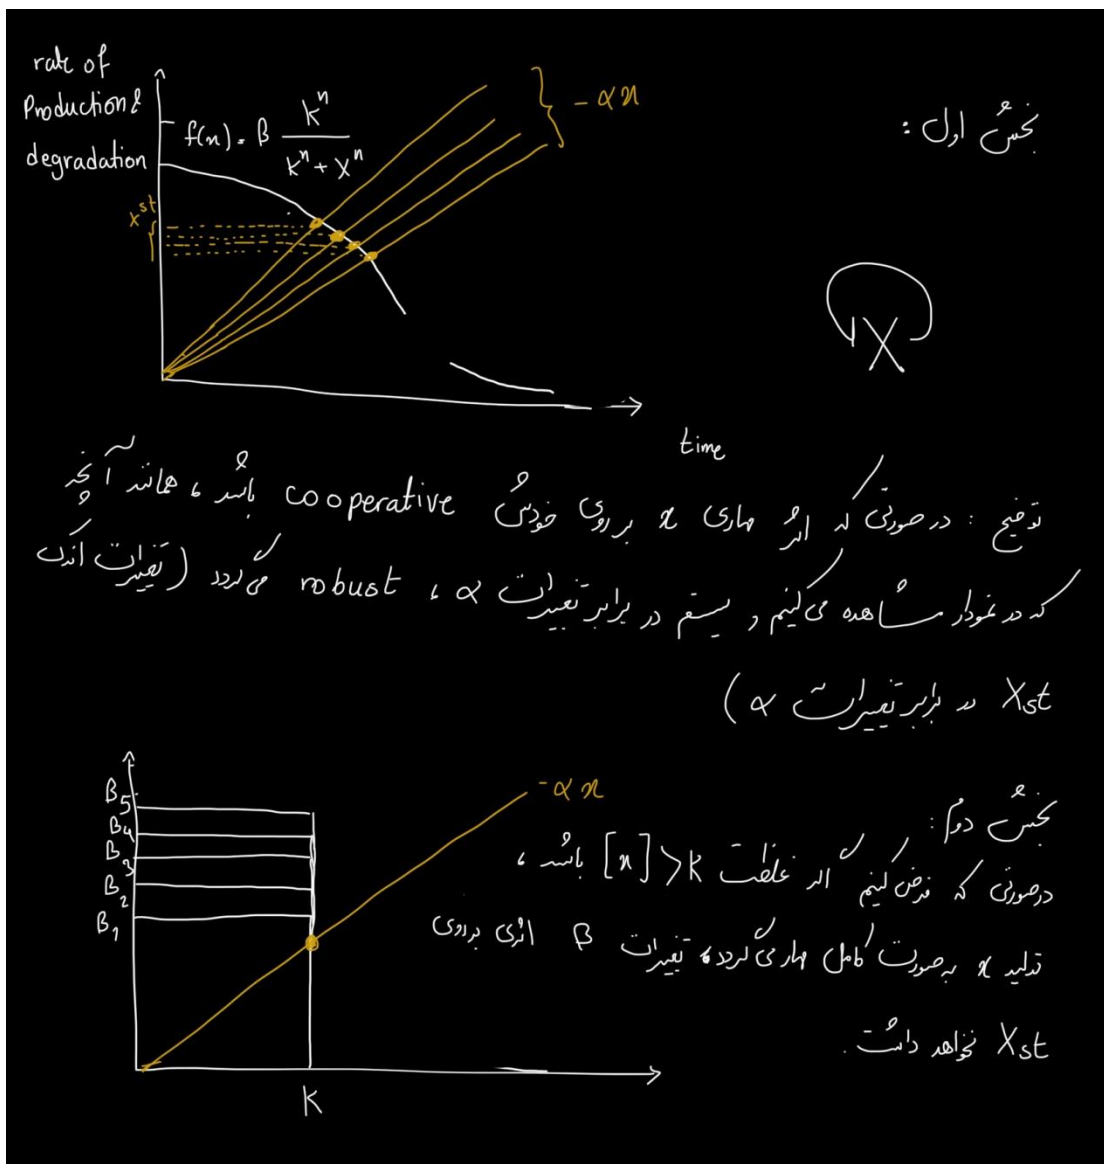 rate of
Production &
degradation
f(x) = β k^n / (k^n + x^n)
x^st
- αx
بخش اول :
X
time
توضیح : در صورتی که اثر مهاری x بر روی خودش cooperative باشد ، همانند آنچه
که در نمودار مشاهده می‌کنیم ، سیستم در برابر تغییرات α ، robust می‌گردد (تغییرات اندک
Xst در برابر تغییرات α)
B5
B4
B3
B2
B1
- αx
K
بخش دوم :
درصورتی که فرض کنیم اگر غلظت [x] > K باشد ،
تولید x به صورت کامل مهار می‌گردد ، تغییرات B اثری بر روی
Xst نخواهد داشت .